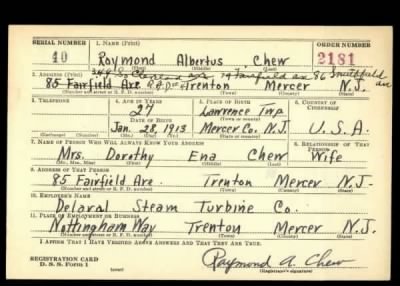 SERIAL NUMBER 1. NAME (Print) ORDER NUMBER
10 Raymond Albertus Chew 2181
(First) (Middle) (Last)
2. ADDRESS (Print) 74 Fairfield Ave 86 Smithfield Ave
85 Fairfield Ave. Trenton Mercer N.J.
(Number and street or R. F. D. number) (Town) (County) (State)
3. TELEPHONE 4. AGE IN YEARS 5. PLACE OF BIRTH 6. COUNTRY OF CITIZENSHIP
27 Lawrence Twp
DATE OF BIRTH (Town or county)
Jan. 28, 1913 Mercer Co. N.J. U.S.A.
(Exchange) (Number) (Mo.) (Day) (Yr.) (State or country)
7. NAME OF PERSON WHO WILL ALWAYS KNOW YOUR ADDRESS 8. RELATIONSHIP OF THAT PERSON
Mrs. Dorothy Ena Chew Wife
(Mr., Mrs., Miss) (First) (Middle) (Last)
9. ADDRESS OF THAT PERSON
85 Fairfield Ave. Trenton Mercer N.J.
(Number and street or R. F. D. number) (Town) (County) (State)
10. EMPLOYER'S NAME
Delaval Steam Turbine Co.
11. PLACE OF EMPLOYMENT OR BUSINESS
Nottingham Way Trenton Mercer N.J.
(Number and street or R. F. D. number) (Town) (County) (State)
I AFFIRM THAT I HAVE VERIFIED ABOVE ANSWERS AND THAT THEY ARE TRUE.
REGISTRATION CARD
D. S. S. Form 1 Raymond A. Chew
(over) (Registrant's signature)